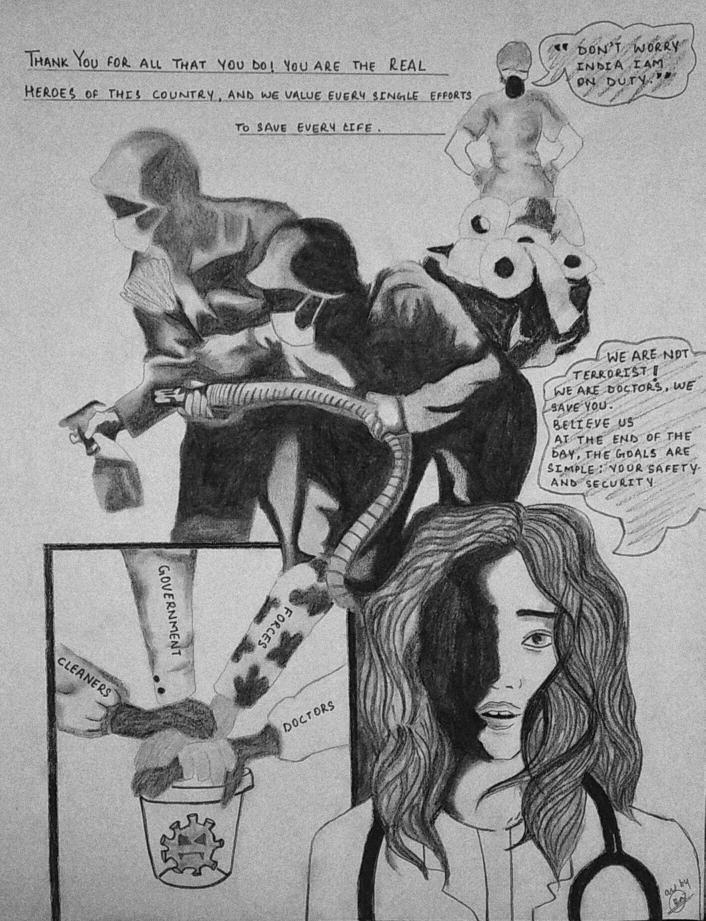 THANK YOU FOR ALL THAT YOU DO! YOU ARE THE REAL
HEROES OF THIS COUNTRY, AND WE VALUE EVERY SINGLE EFFORTS
TO SAVE EVERY LIFE.
"DON'T WORRY
INDIA I AM
ON DUTY."
WE ARE NOT
TERRORIST!
WE ARE DOCTORS, WE
SAVE YOU.
BELIEVE US
AT THE END OF THE
DAY, THE GOALS ARE
SIMPLE: YOUR SAFETY
AND SECURITY
GOVERNMENT
FORCES
CLEANERS
DOCTORS
art by